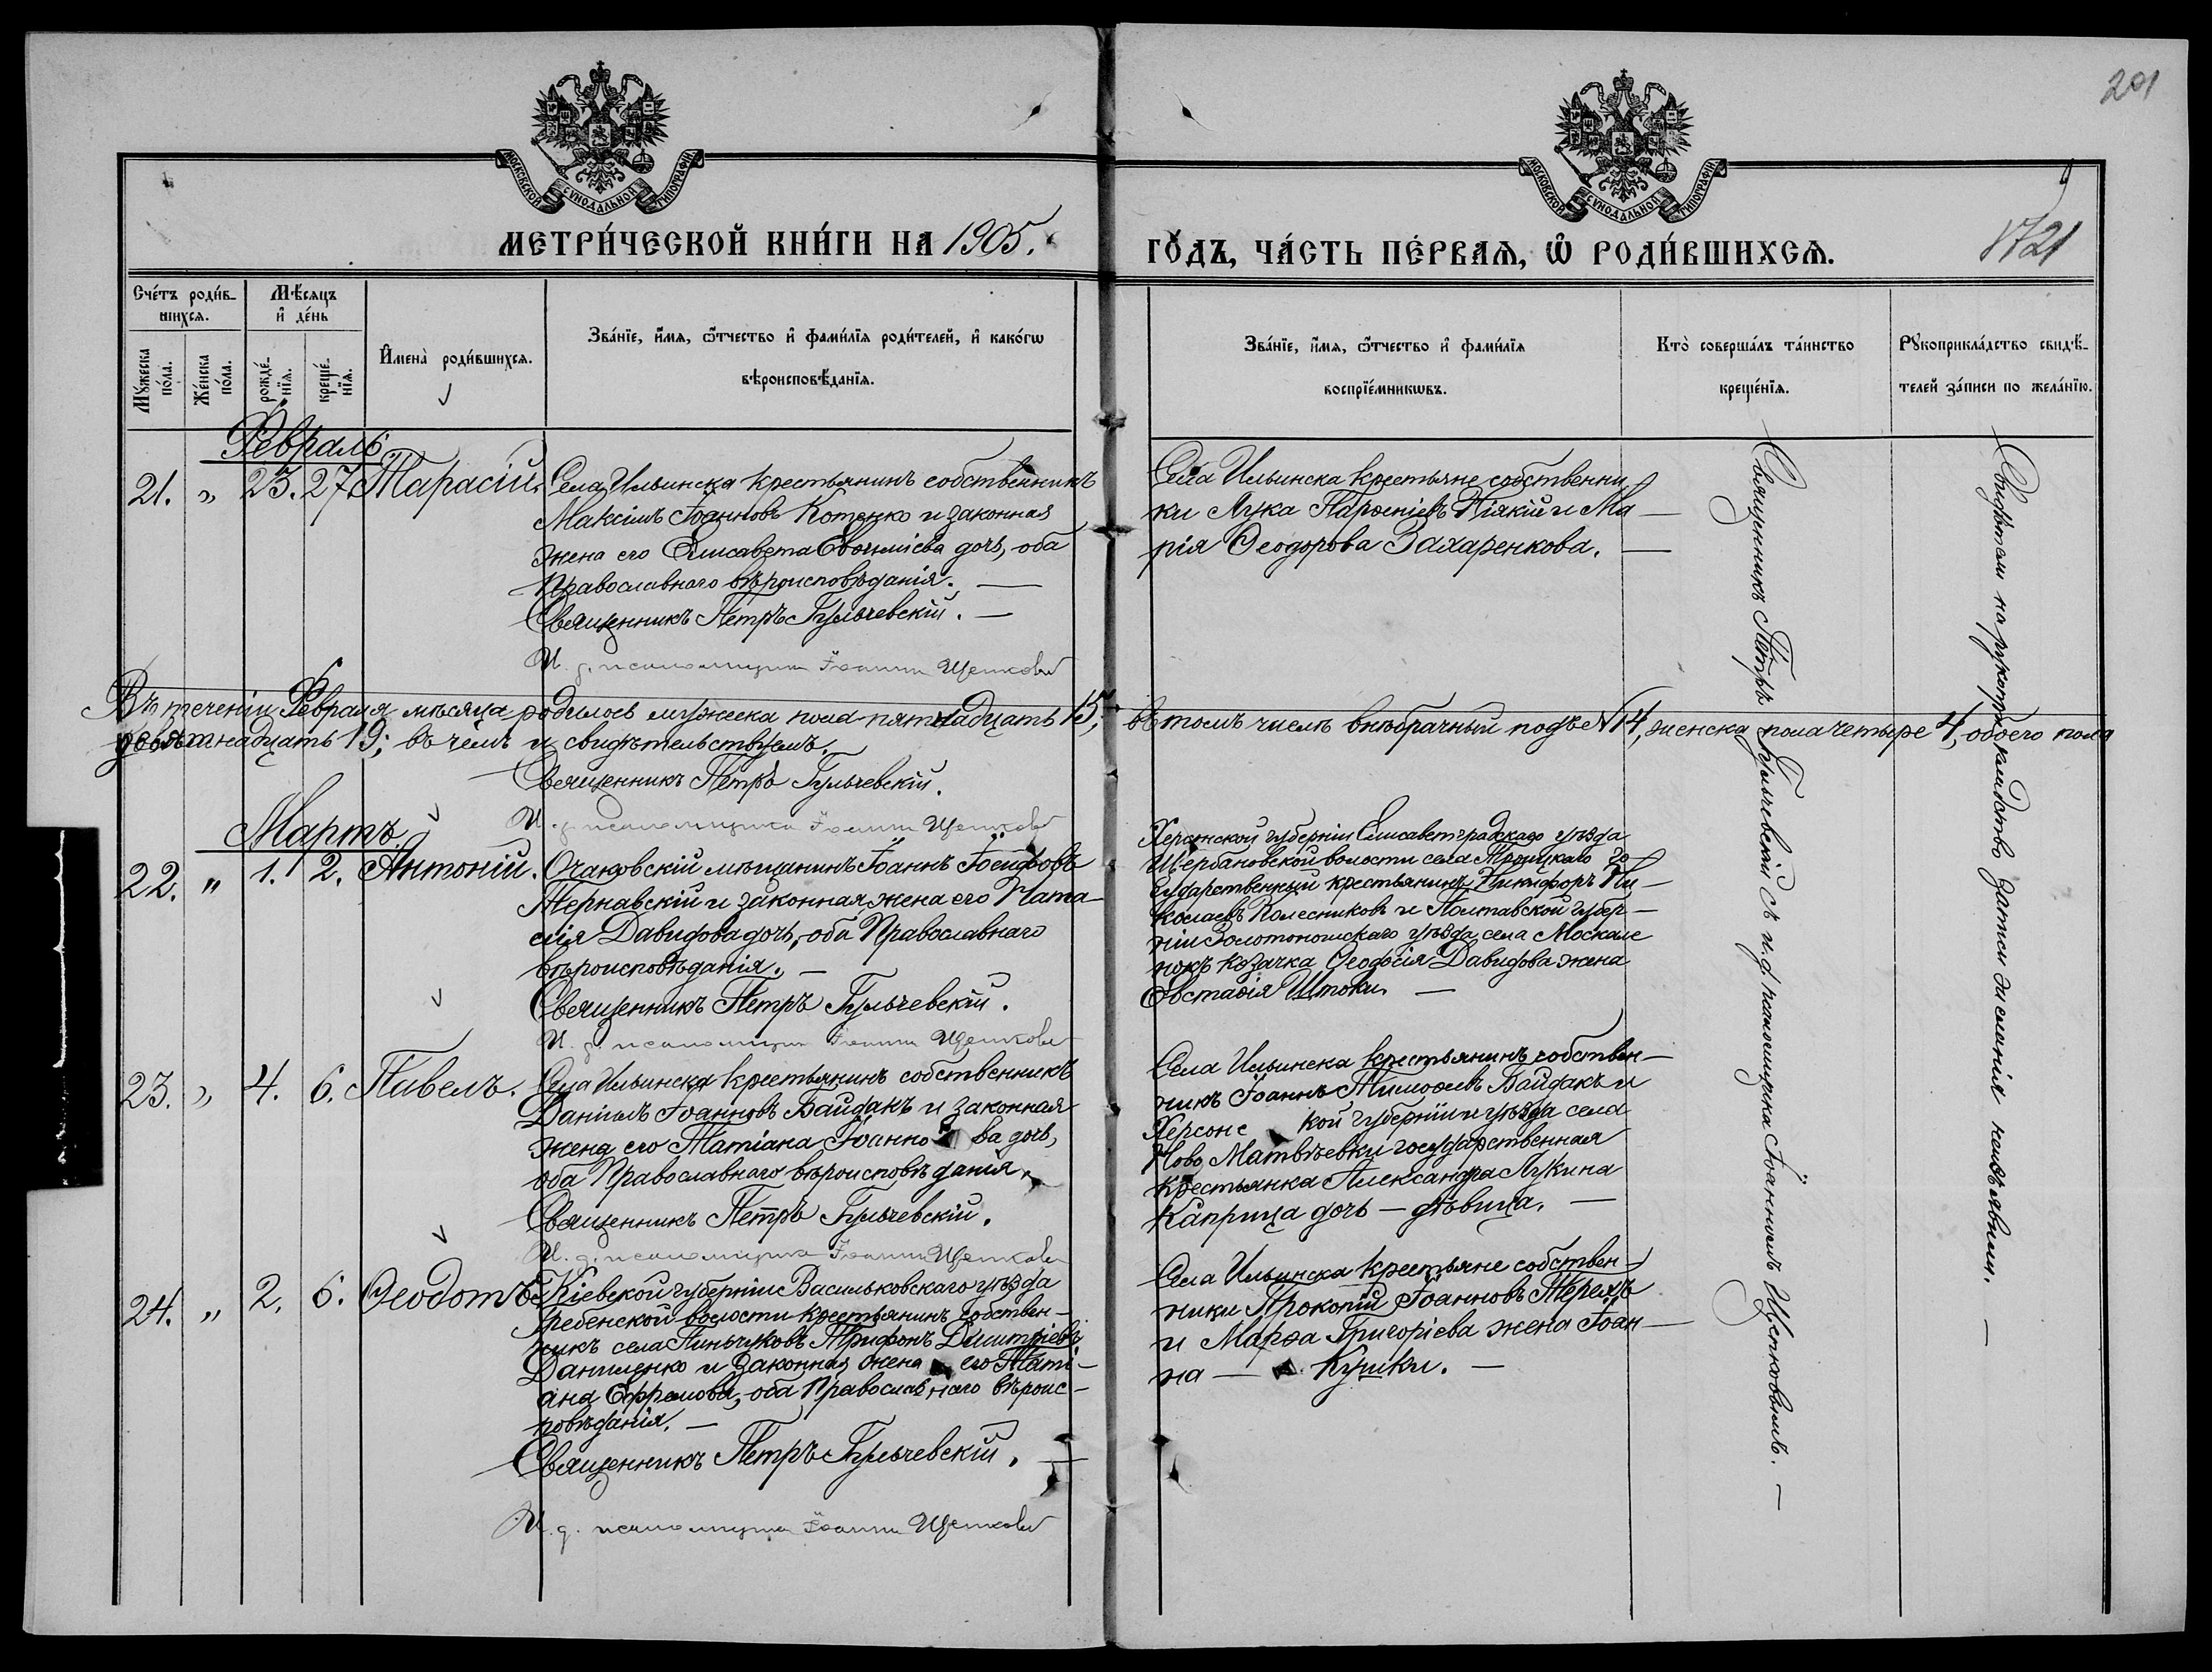 201
МОСКОВСКОЙ СѴНОДАЛЬНОЙ ТИПОГРАФІИ
МОСКОВСКОЙ СѴНОДАЛЬНОЙ ТИПОГРАФІИ
МЕТРИ́ЧЕСКОЙ КНИ́ГИ НА 1905.
ГО́ДЪ, ЧА́СТЬ ПЕ́РВАѦ, Ѽ РОДИ́ВШИХСѦ.
1721
Сче́тъ роди́в-
шихсѧ.
Мѣ́сѧцъ
и҆ де́нь
Мꙋ́жеска
по́ла.
Же́нска
по́ла.
рожде́-
нїѧ.
креще́-
нїѧ.
И҆мена̀ роди́вшихсѧ.
Зва́нїе, и҆́мѧ, ѻ҆́тчество и҆ фами́лїѧ роди́телей, и҆ како́гѡ
вѣроисповѣ́данїѧ.
Зва́нїе, и҆́мѧ, ѻ҆́тчество и҆ фами́лїѧ
воспрїе́мникѡвъ.
Кто̀ соверша́лъ та́инство
креще́нїѧ.
Рꙋкоприкла́дство свидѣ́-
телей за́писи по жела́нїю.
Февраль
21. „ 23. 27. Тарасій.
Села Ильинска крестьянинъ собственникъ
Максимъ Іоанновъ Котенко и законная
жена его Елисавета Евѳиміева дочь, оба
Православнаго вѣроисповѣданія. —
Священникъ Петръ Бульчевскій. —
И. д. псаломщика Іоаннъ Щепковъ
Села Ильинска крестьяне собственни
ки Лука Парѳеніевъ Піякій и Ма —
рія Ѳеодорова Захаренкова. —
Въ теченіи Февраля мѣсяца родилось мужеска пола пятнадцать 15, въ томъ числѣ внѣбрачный подъ № 14, женска пола четыре 4, обоего пола
девятнадцать 19; въ чемъ и свидѣтельствуемъ.
Священникъ Петръ Бульчевскій.
И. д. псаломщика Іоаннъ Щепковъ
Мартъ
22. „ 1. 2. Антоній.
Очаковскій мѣщанинъ Іоаннъ Іосифовъ
Тернавскій и законная жена его Ната-
лія Давидова дочь, оба Православнаго
вѣроисповѣданія. —
Священникъ Петръ Бульчевскій.
И. д. псаломщика Іоаннъ Щепковъ
Херсонской губерніи Елисаветградскаго уѣзда
Щербановской волости села Троицкаго го
сударственный крестьянинъ Никифоръ Ни —
колаевъ Колесниковъ и Полтавской губер —
ніи Золотоношскаго уѣзда села Москале
нокъ козачка Ѳеодосія Давидова жена
Евстаѳія Штоки. —
23. „ 4. 6. Павелъ.
Села Ильинска крестьянинъ собственникъ
Даніилъ Іоанновъ Байдакъ и законная
жена его Татіана Іоаннова дочь,
оба Православнаго вѣроисповѣданія.
Священникъ Петръ Бульчевскій.
И. д. псаломщика Іоаннъ Щепковъ
Села Ильинска крестьянинъ собствен —
никъ Іоаннъ Тимоѳеевъ Байдакъ и
Херсонской губерніи и уѣзда села
Ново Матвѣевки государственная
крестьянка Александра Лукина
Каприца дочь — дѣвица. —
24. „ 2. 6. Ѳеодотъ.
Кіевской губерніи Васильковскаго уѣзда
Гребенской волости крестьянинъ собствен —
никъ села Пинчуковъ Трифонъ Димитріевъ
Даниленко и законная жена его Тати —
ана Ефремова, оба Православнаго вѣроис —
повѣданія. —
Священникъ Петръ Бульчевскій. —
И. д. псаломщика Іоаннъ Щепковъ
Села Ильинска крестьяне собствен —
ники Прокопій Іоанновъ Терехъ
и Марѳа Григоріева жена Іоан —
на — Кушки. —
Священникъ Петръ Бульчевскій съ и. д. псаломщика Іоанномъ Щепковымъ. —
Свидѣтели на рукоприкладство